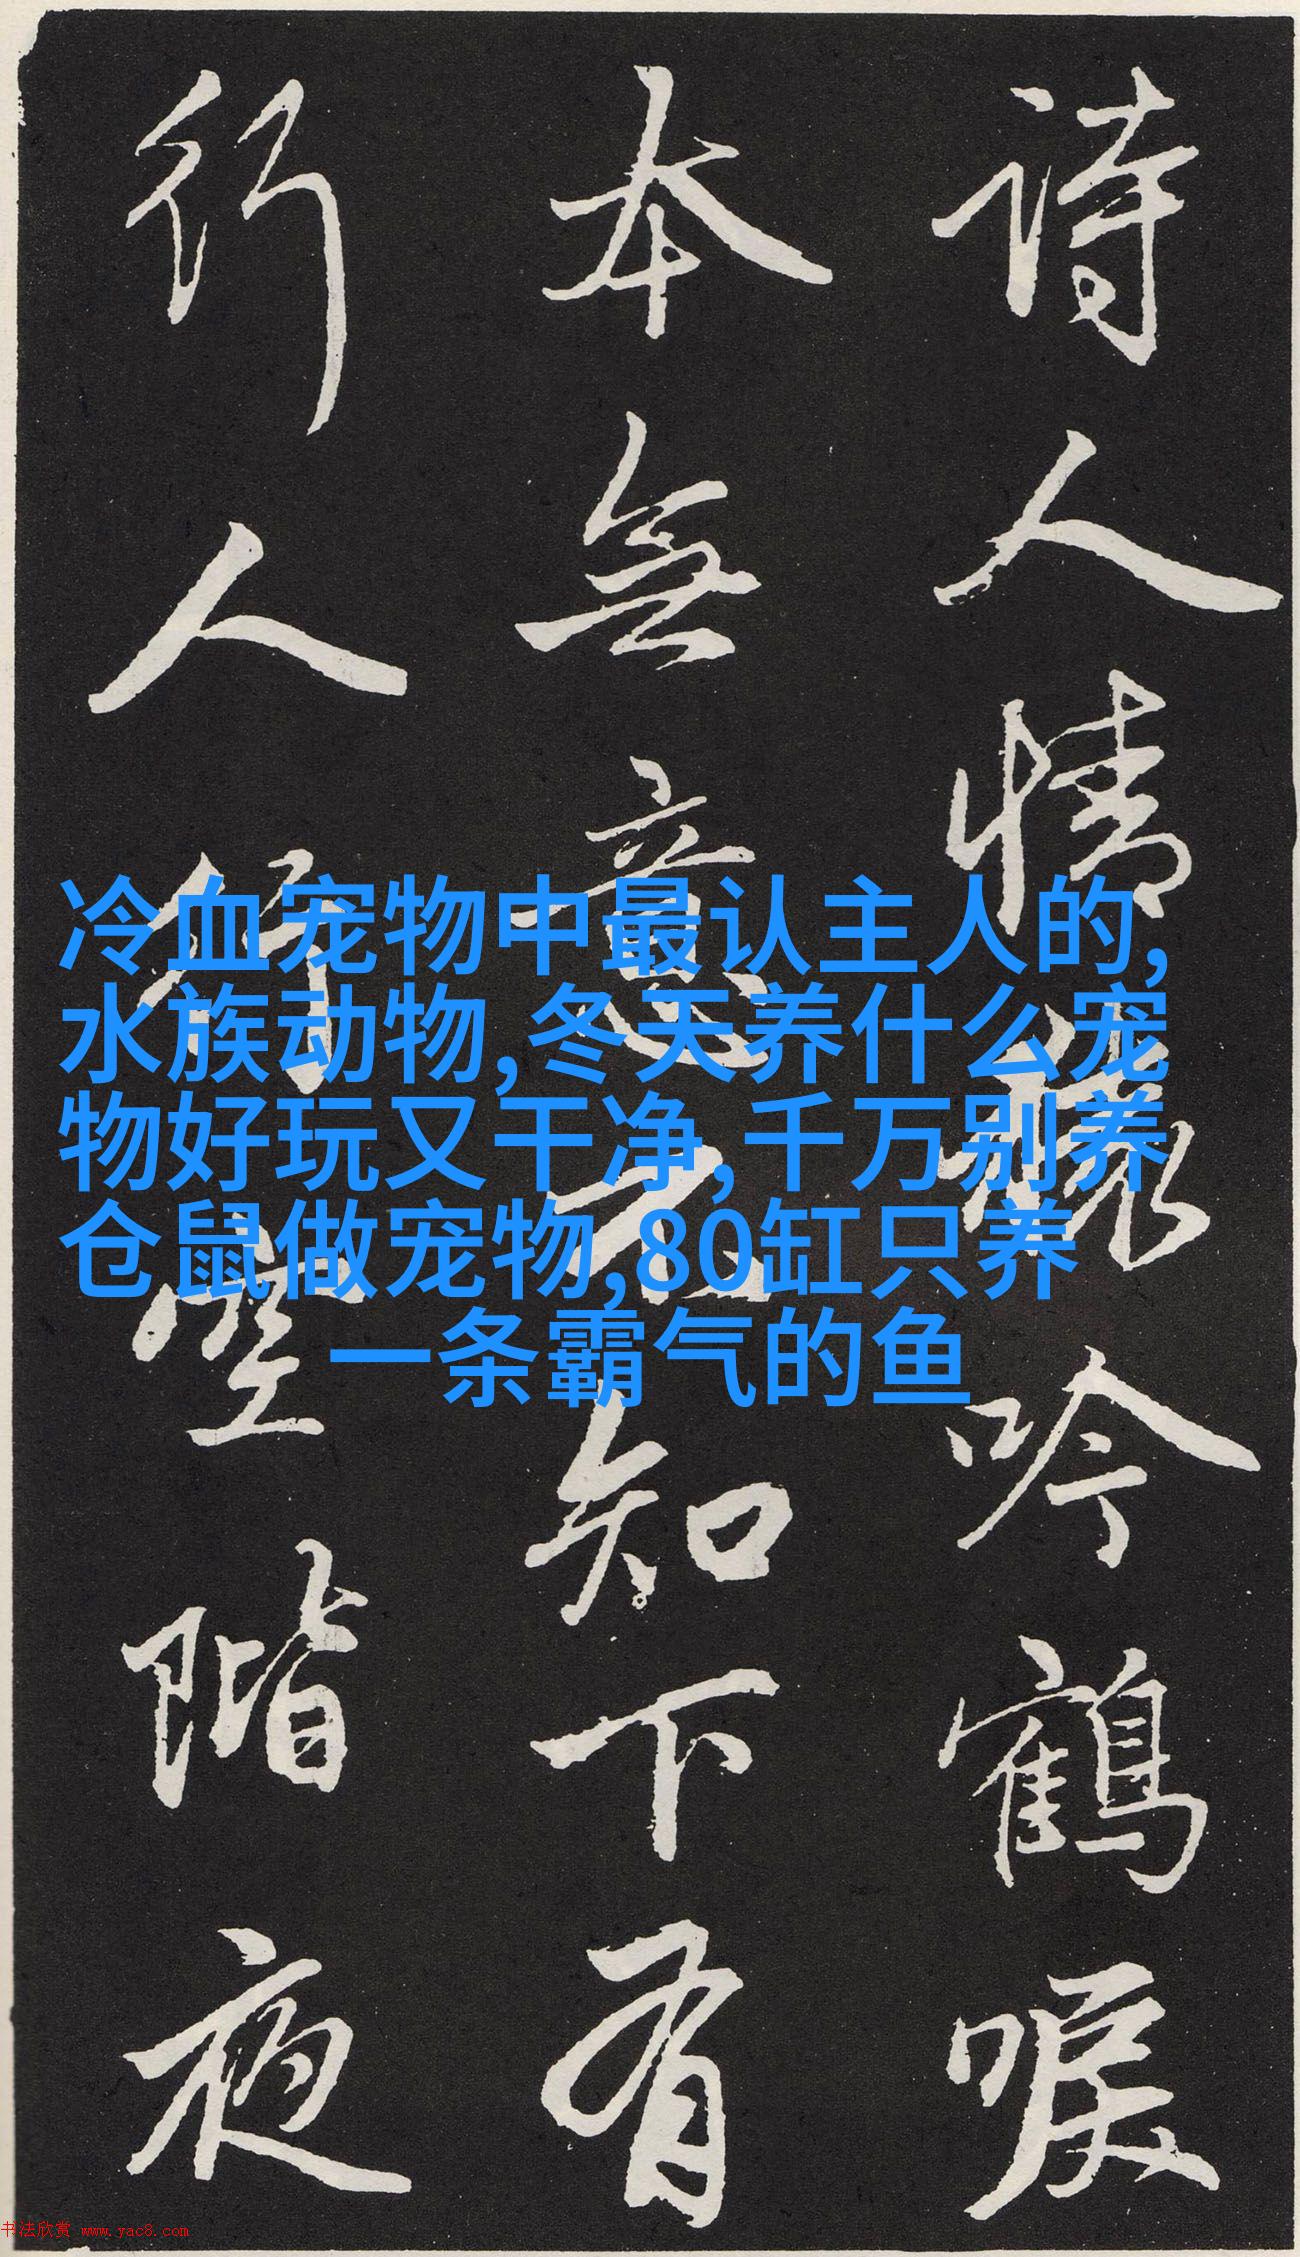 詩人情猿吟鶴唳
本無意不知下有
行人行空階夜
冷血宠物中最认主人的,
水族动物,冬天养什么宠
物好玩又干净,千万别养
仓鼠做宠物,80缸只养
一条霸气的鱼
书法欣赏 www.yac8.com